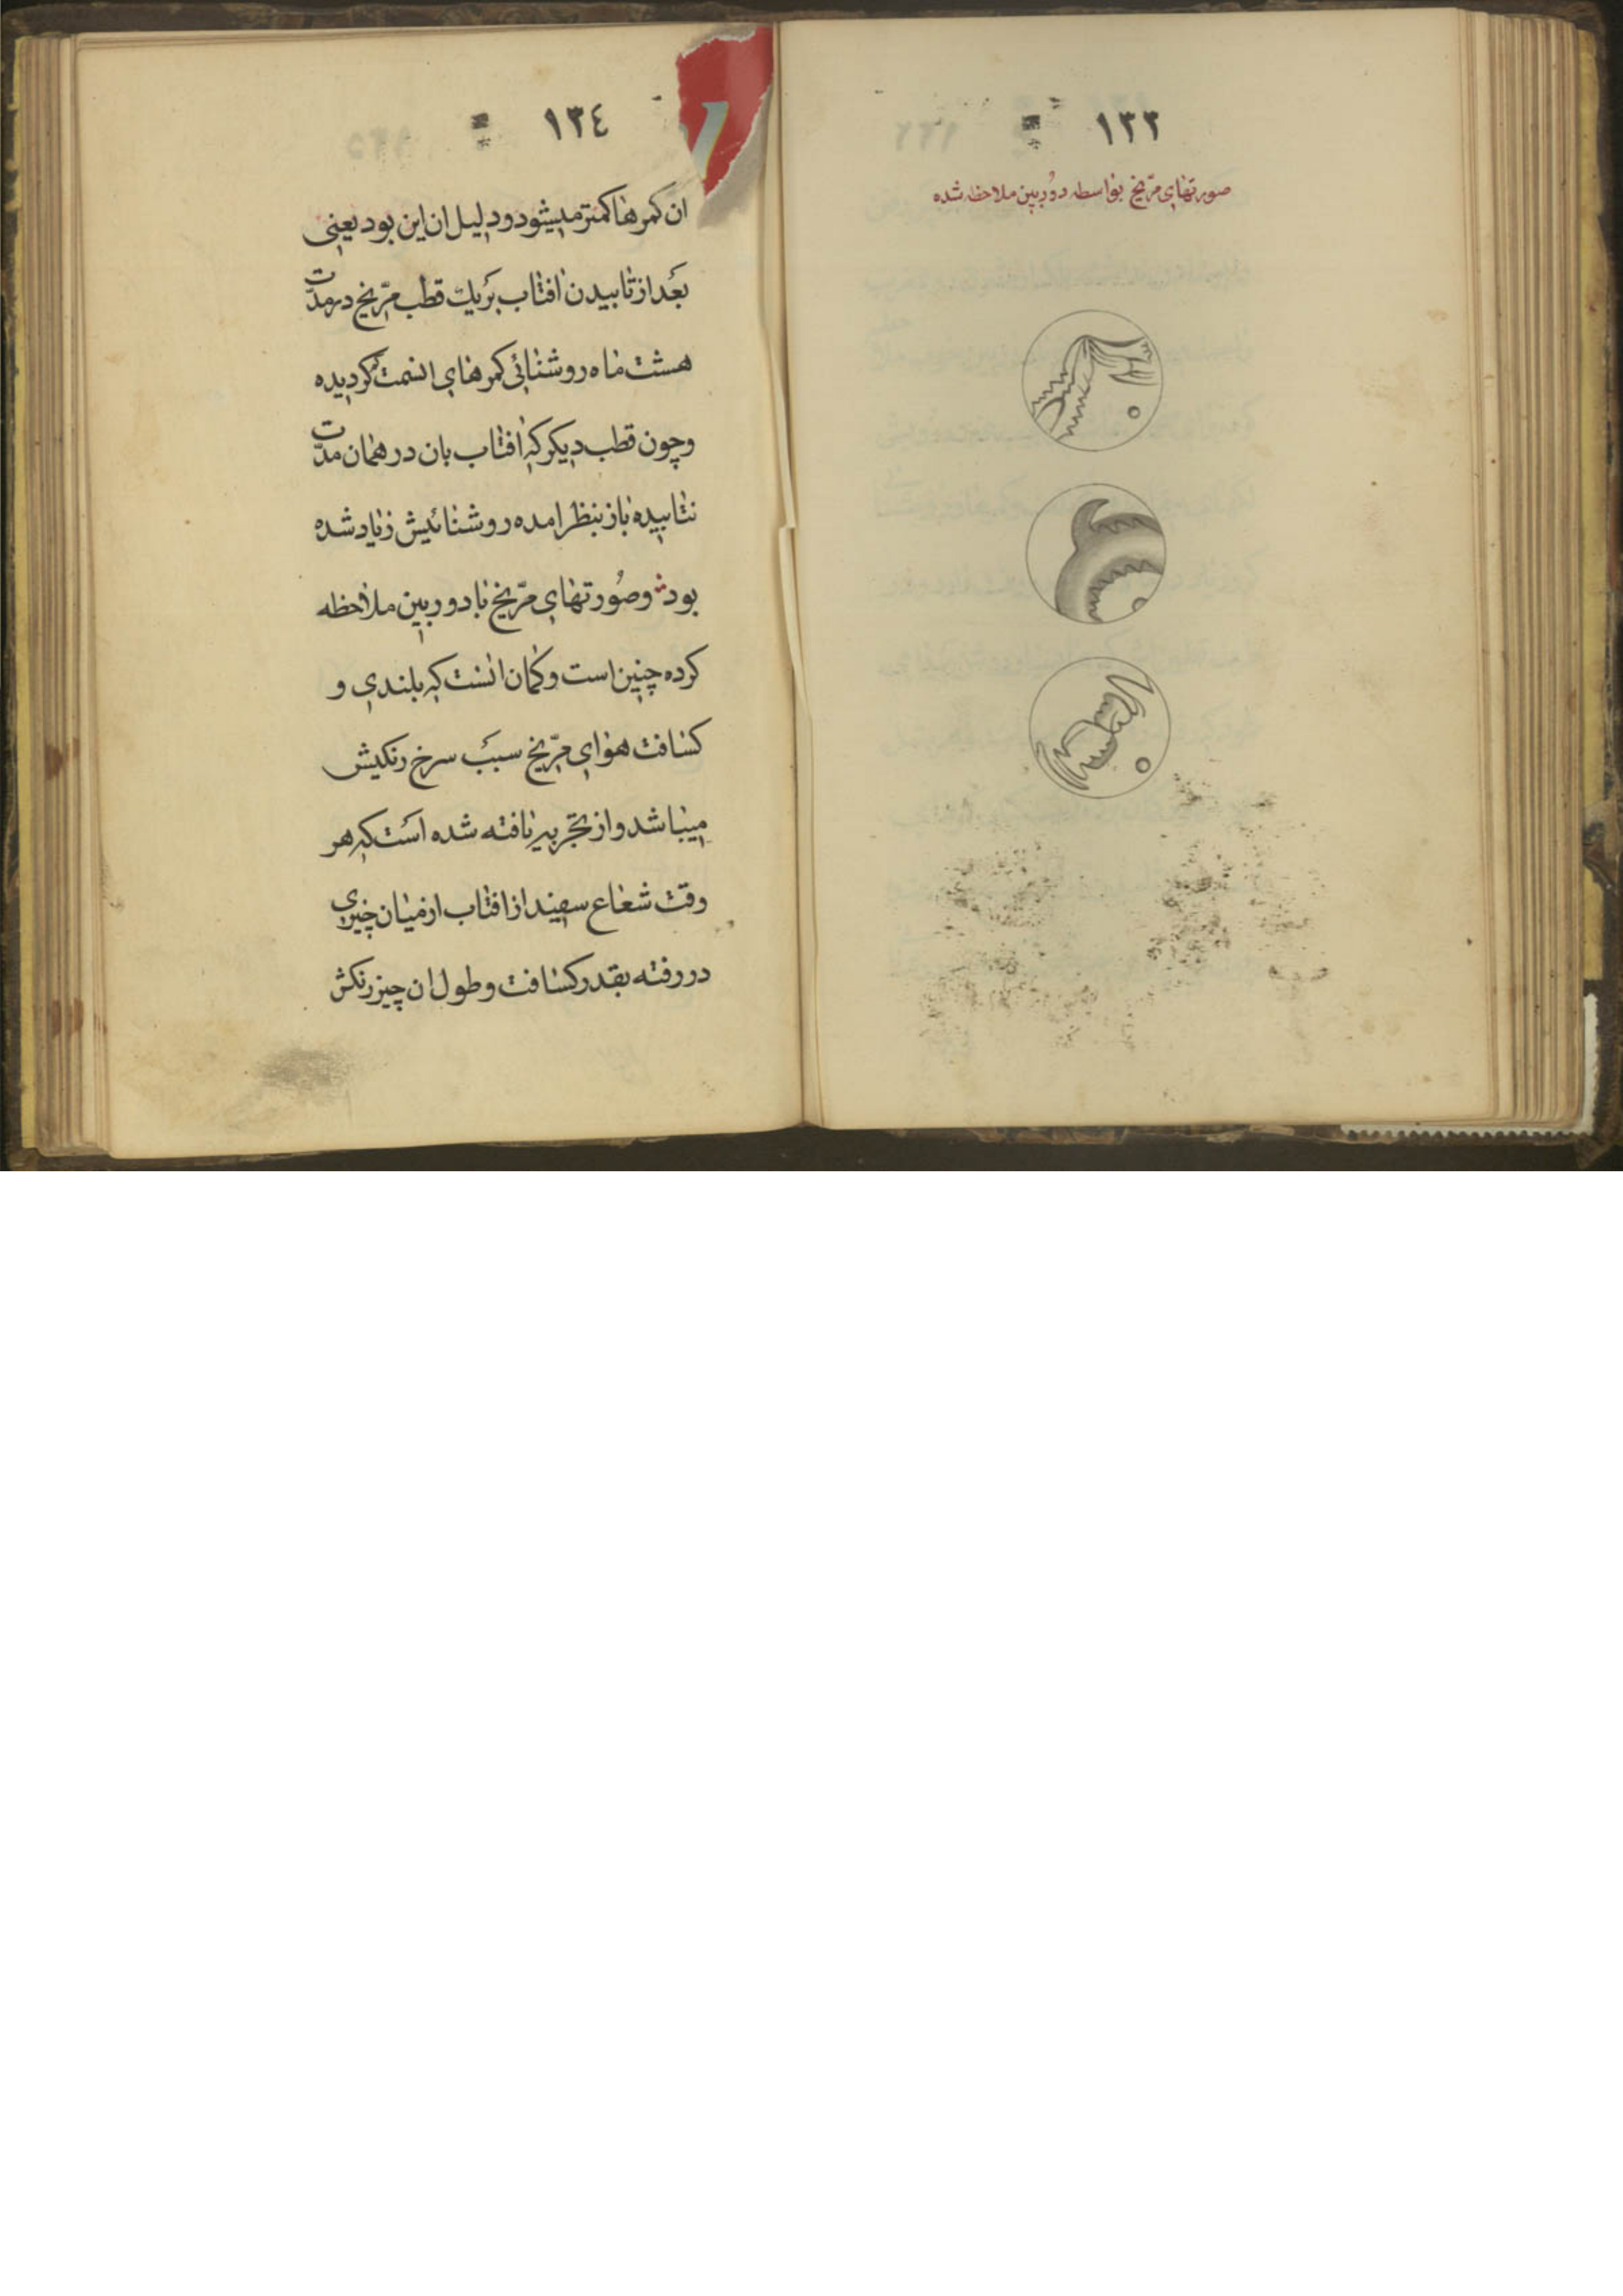 ١٣٣
صورتهای مرّیخ بواسطه دوربین ملاحظه شده
١٣٤
ان کمرها کمتر میشود و دلیل ان این بود یعنی
بعد از تابیدن افتاب بر یك قطب مرّیخ در مدّت
هشت ماه روشنائی کمرهای انسمت کردیده
و چون قطب دیکر که افتاب بان در همان مدّت
نتابیده باز بنظر امده روشنائیش زیاد شده
بود و صورتهای مرّیخ با دوربین ملاحظه
کرده چنین است و کمان انست که بلندی و
کسافت هوای مرّیخ سبب سرخ رنکیش
میباشد و از تجربه یافته شده است که هر
وقت شعاع سفید از افتاب از میان چیزی
در رفته بقدر کسافت و طول ان چیز رنکش